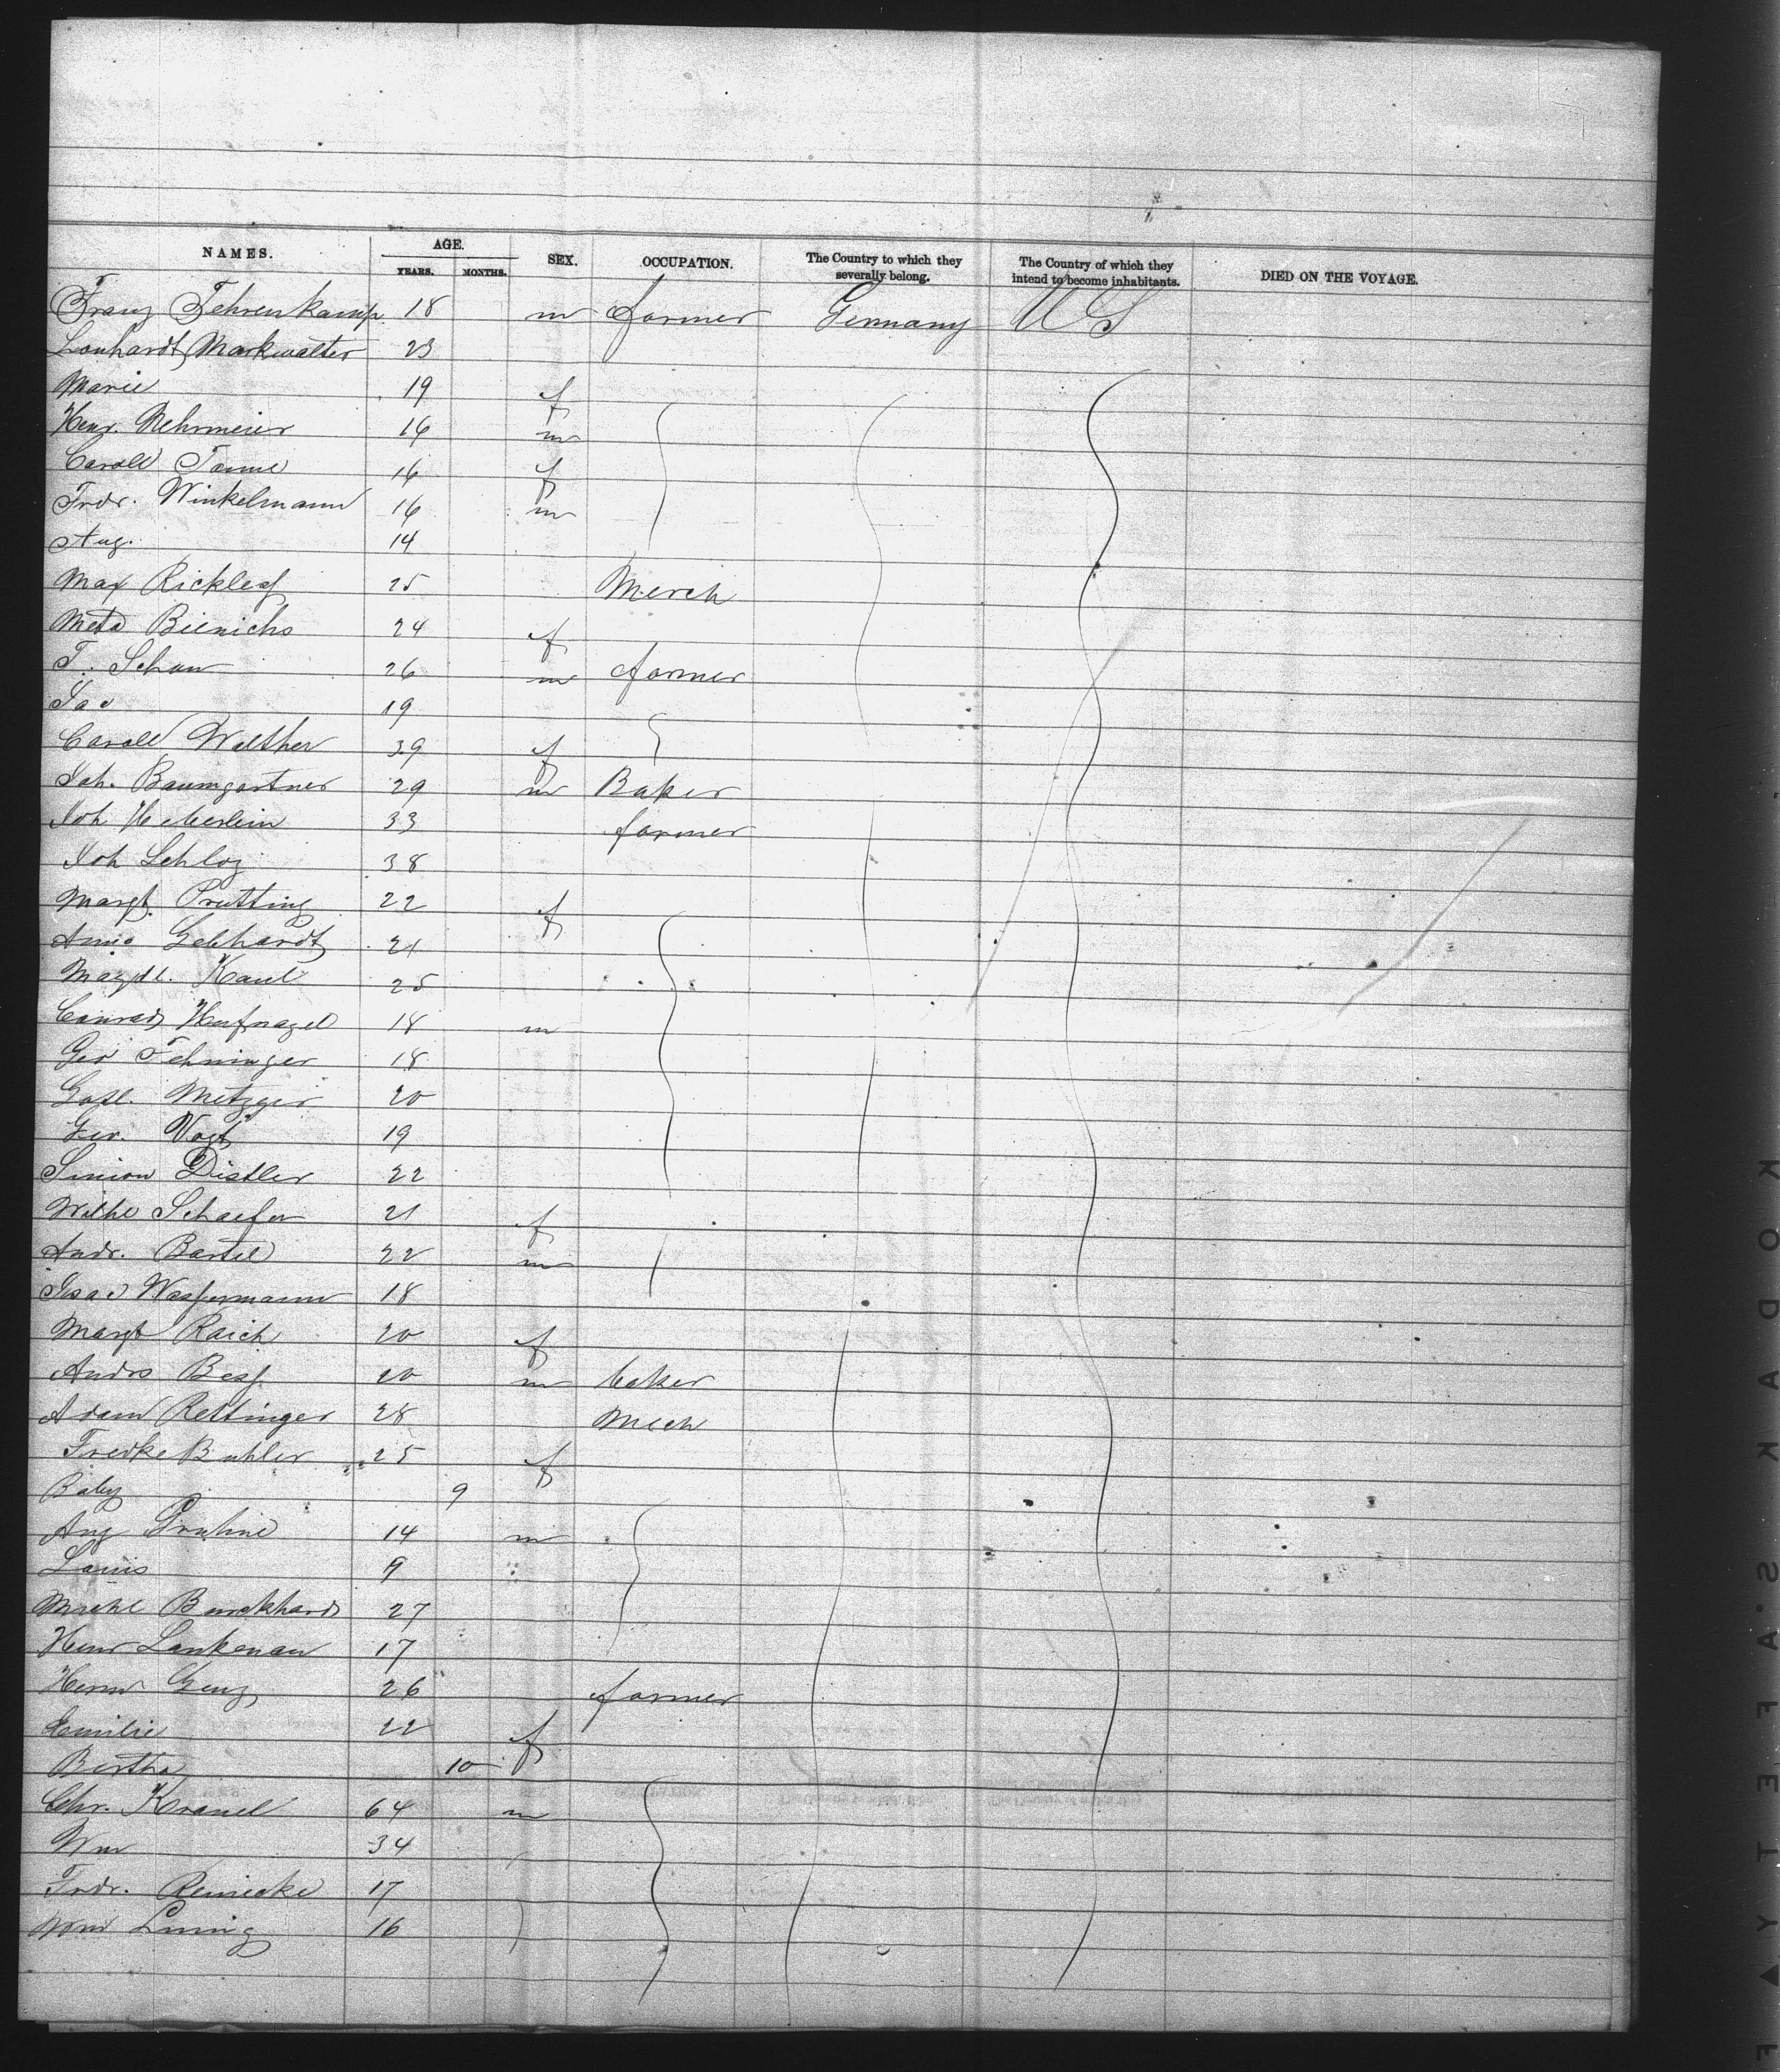 NAMES. AGE. YEARS. MONTHS. SEX. OCCUPATION. The Country to which they severally belong. The Country of which they intend to become inhabitants. DIED ON THE VOYAGE.
Franz Fehrenkamp 18 m farmer Germany US
Lonhardt Markwalter 23
Marie 19 f
Henr. Nehrmeier 16 m
Caroll Tonne 16 f
Frdr. Winkelmann 16 m
Aug. 14
Max Rickless 25 Merch
Meta Bienichs 24 f
F. Schau 26 m farmer
Jac 19
Caroll Walther 39 f
Joh. Baumgartner 29 m Baker
Joh Heberlein 33 farmer
Joh Schloz 38
Margt. Prutting 22 f
Anna Gebhardt 21
Magdl. Kaul 25
Conrad Hufnagel 18 m
Geo Fehninger 18
Gottl. Metzger 20
Geo. Vogt 19
Simon Distler 22
Wilhe Schaefer 21 f
Andr. Bartel 22 m
Isaac Wassermann 18
Margt Raich 20 f
Andrs Bess 20 m baker
Adam Rettinger 28 Mech
Fredke Buhler 25 f
Baby 9
Aug Pruhne 14 m
Louis 9
Michl Burckhard 27
Henr Lankenau 17
Herm Genz 26 farmer
Emilie 22 f
Bertha 10
Chr. Kranel 64 m
Wm 34
Frdr. Reinecke 17
16
KODAK SAFETY